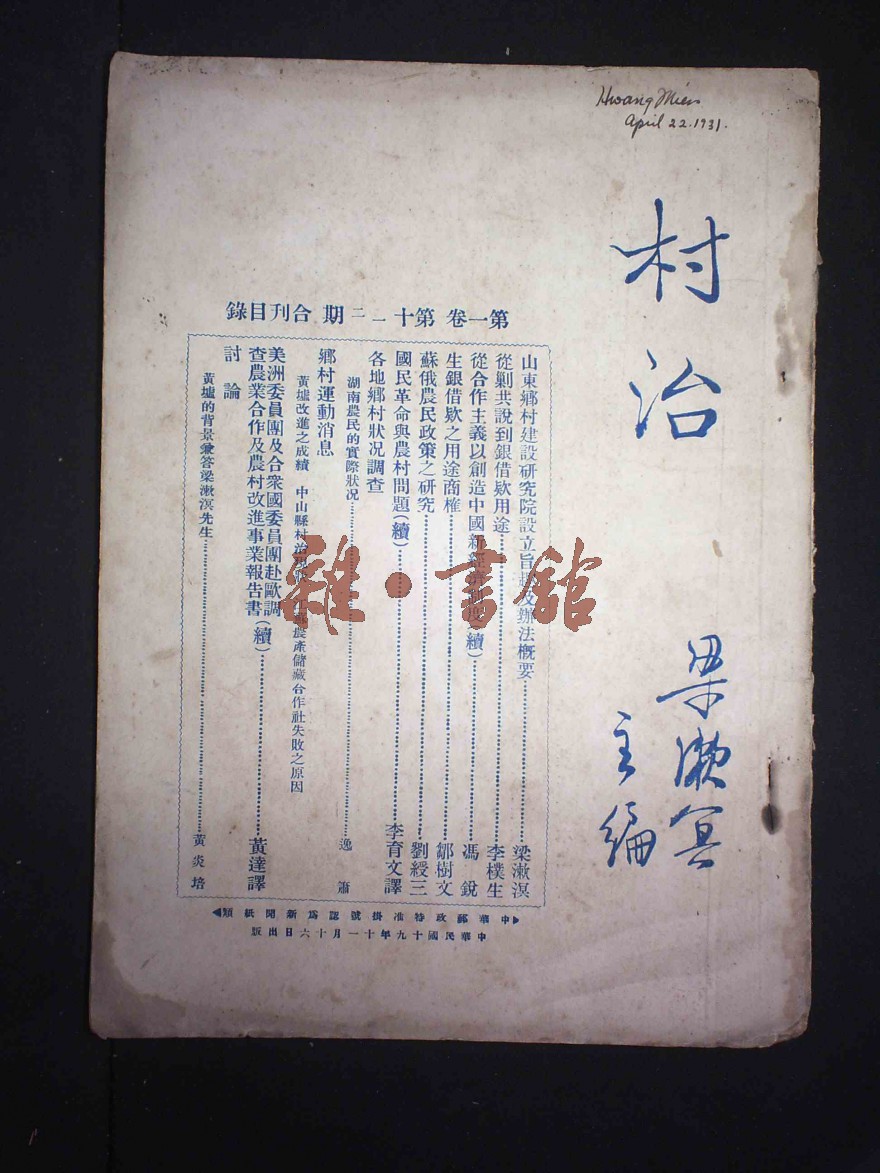 Hwang Mien
April 22. 1931.
村治
梁漱冥
主編
第一卷 第十一二期 合刊目錄
山東鄉村建設研究院設立旨趣及辦法概要……梁漱溟
從剿共說到銀借欵用途……李樸生
從合作主義以創造中國新經濟制度(續)……馮銳
生銀借欵之用途商榷……鄒樹文
蘇俄農民政策之研究……劉綬三
國民革命與農村問題(續)……李育文譯
各地鄉村狀况調查
湖南農民的實際狀况……逸蕭
鄉村運動消息
黃墟改進之成績 中山縣村治 農產儲藏合作社失敗之原因
美洲委員團及合衆國委員團赴歐調
查農業合作及農村改進事業報告書(續)……黃達譯
討論
黃墟的背景兼答梁漱溟先生……黃炎培
中華郵政特准掛號認爲新聞紙類
中華民國十九年十一月十六日出版
雜·書館